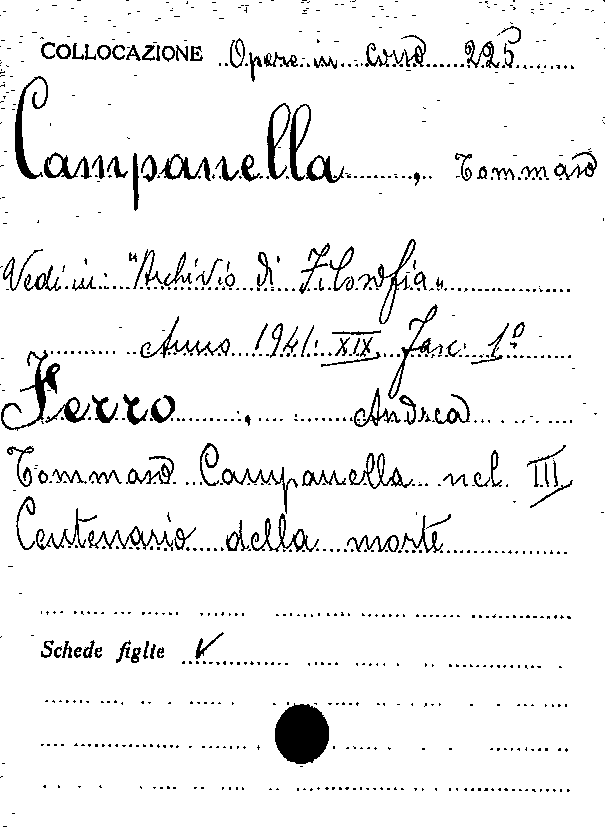 COLLOCAZIONE Opere in corso 225
Campanella, Tommaso
Vedi in: "Archivio di Filosofia"
Anno 1941. XIX Fasc. 1º
Ferro, Andrea
Tommaso Campanella nel III
Centenario della morte
Schede figlie ✓